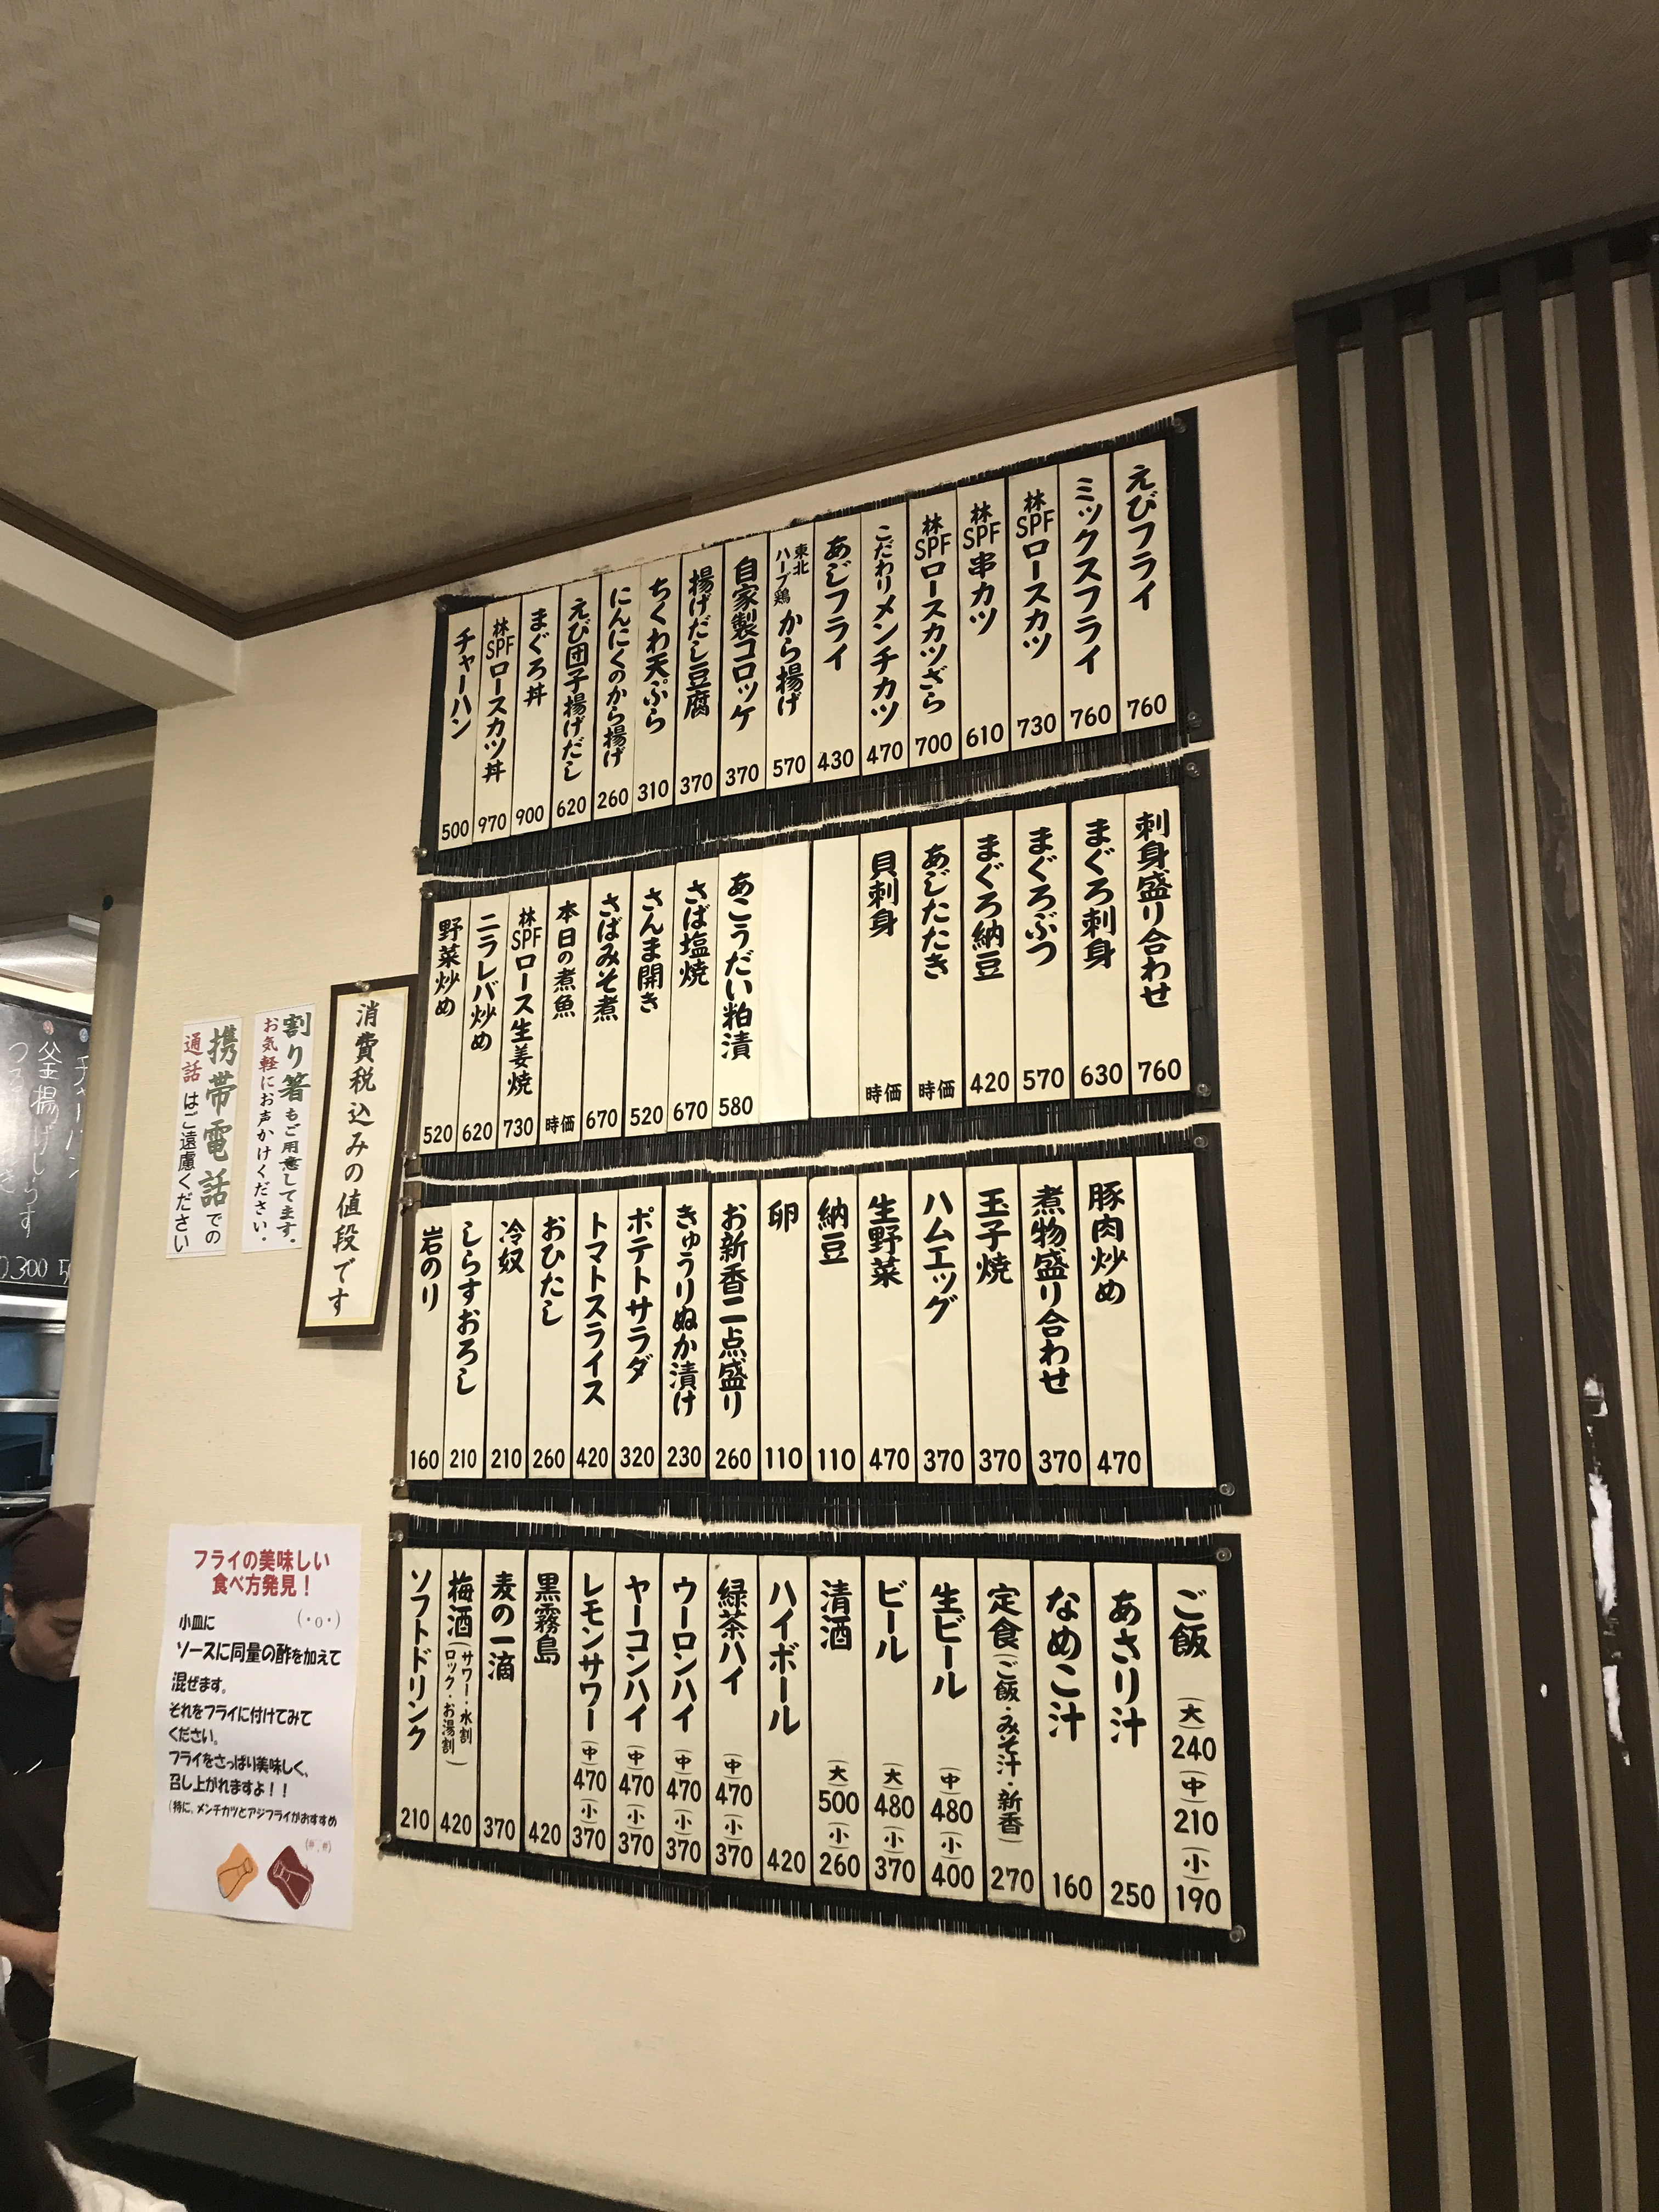 えびフライ 760
ミックスフライ 760
林SPFロースカツ 730
林SPF串カツ 610
林SPFロースカツざら 700
こだわりメンチカツ 470
あじフライ 430
東北ハーブ鶏から揚げ 570
自家製コロッケ 370
揚げだし豆腐 370
ちくわ天ぷら 310
にんにくのから揚げ 260
えび団子揚げだし 620
まぐろ丼 900
林SPFロースカツ丼 970
チャーハン 500
刺身盛り合わせ 760
まぐろ刺身 630
まぐろぶつ 570
まぐろ納豆 420
あじたたき 時価
貝刺身 時価
あこうだい粕漬 580
さば塩焼 670
さんま開き 520
さばみそ煮 670
本日の煮魚 時価
林SPFロース生姜焼 730
ニラレバ炒め 620
野菜炒め 520
豚肉炒め 470
煮物盛り合わせ 370
玉子焼 370
ハムエッグ 370
生野菜 470
納豆 110
卵 110
お新香二点盛り 260
きゅうりぬか漬け 230
ポテトサラダ 320
トマトスライス 420
おひたし 260
冷奴 210
しらすおろし 210
岩のり 160
ご飯 (大) 240 (中) 210 (小) 190
あさり汁 250
なめこ汁 160
定食(ご飯・みそ汁・新香) 270
生ビール (中) 480 (小) 400
ビール (大) 480 (小) 370
清酒 (大) 500 (小) 260
ハイボール 420
緑茶ハイ (中) 470 (小) 370
ウーロンハイ (中) 470 (小) 370
ヤーコンハイ (中) 470 (小) 370
レモンサワー (中) 470 (小) 370
黒霧島 420
麦の一滴 370
梅酒(サワー・水割 ロック・お湯割) 420
ソフトドリンク 210
消費税込みの値段です
割り箸もご用意して圭す。
お気軽にお声かけください.
携帯電話での
通話はご遠慮ください
釜揚げしらす
300
フライの美味しい
食べ方発見！
小皿に (・o・)
ソースに同量の酢を加えて
混ぜます。
それをフライに付けてみて
ください。
フライをさっぱり美味しく、
召し上がれますよ！！
(特に、メンチカツとアジフライがおすすめ